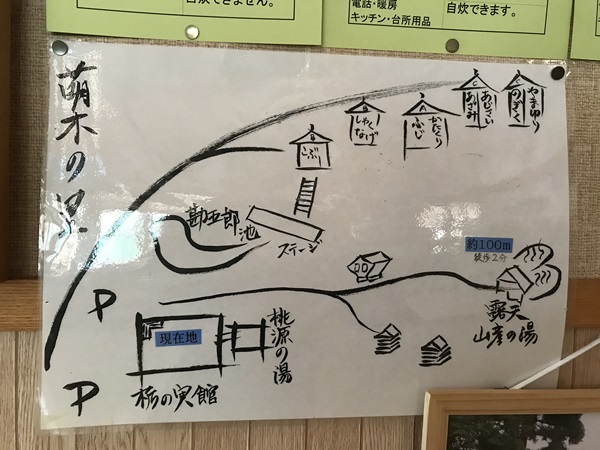 自炊できません。
電話・暖房
キッチン・台所用品
自炊できます。
萌木の里
やまゆり
のぎく
あじさい
あざみ
かたくり
ふじ
しゃくなげ
こぶし
勘五郎池
ステージ
約100m
徒歩2分
露天
山彦の湯
桃源の湯
現在地
栃の実館
P
P